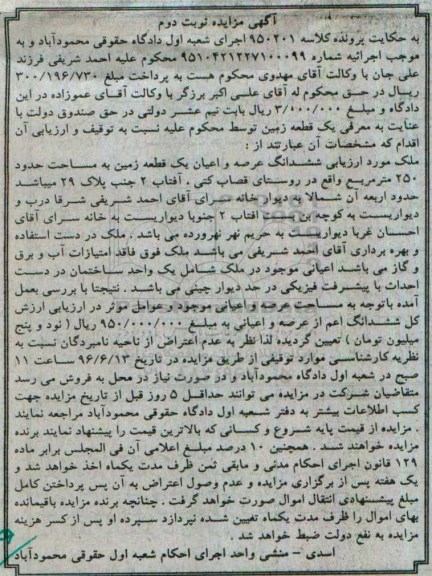 آگهی مزایده نوبت دوم
به حکایت پرونده کلاسه ۹۵۰۲۰۱ اجرای شعبه اول دادگاه حقوقی محمودآباد و به
موجب اجرائیه شماره ۹۵۱۰۴۲۱۲۲۷۱۰۰۰۹۹ محکوم علیه احمد شریفی فرزند
علی جان با وکالت آقای مهدوی محکوم هست به پرداخت مبلغ ۳۰۰/۱۹۶/۷۳۰
ریال در حق محکوم له آقای علی اکبر برزگر با وکالت آقای عموزاده در این
دادگاه و مبلغ ۳/۰۰۰/۰۰۰ ریال بابت نیم عشر دولتی در حق صندوق دولت با
عنایت به معرفی یک قطعه زمین توسط محکوم علیه نسبت به توقیف و ارزیابی آن
اقدام که مشخصات آن عبارتند از :
ملک مورد ارزیابی ششدانگ عرصه و اعیان یک قطعه زمین به مساحت حدود
۲۵۰ مترمربع واقع در روستای قصاب کتی . آفتاب ۲ جنب پلاک ۲۹ میباشد
حدود اربعه آن شمالا به دیوار خانه سرای آقای احمد شریفی شرقا درب و
دیواریست به کوچه بن بست آفتاب ۲ جنوبا دیواریست به خانه سرای آقای
احسان غربا دیواریست به حریم نهر نهرورده می باشد . ملک در دست استفاده
و بهره برداری آقای احمد شریفی می باشد ملک فوق فاقد امتیازات آب و برق
و گاز می باشد اعیانی موجود در ملک شامل یک واحد ساختمان در دست
احداث با پیشرفت فیزیکی در حد دیوار چینی می باشد . نتیجتا با بررسی بعمل
آمده باتوجه به مساحت عرصه و اعیانی موجود و عوامل موثر در ارزیابی ارزش
کل ششدانگ اعم از عرصه و اعیانی به مبلغ ۹۵۰/۰۰۰/۰۰۰ ریال ( نود و پنج
میلیون تومان ) تعیین گردیده لذا نظر به عدم اعتراض از ناحیه نامبردگان نسبت به
نظریه کارشناسی موارد توقیفی از طریق مزایده در تاریخ ۹۶/۶/۱۳ ساعت ۱۱
صبح در شعبه اول دادگاه محمودآباد و در صورت نیاز در محل به فروش می رسد
متقاضیان شرکت در مزایده می توانند حداقل ۵ روز قبل از تاریخ مزایده جهت
کسب اطلاعات بیشتر به دفتر شعبه اول دادگاه حقوقی محمودآباد مراجعه نمایند
. مزایده از قیمت پایه شروع و کسانی که بالاترین قیمت را پیشنهاد نمایند برنده
مزایده خواهند شد . همچنین ۱۰ درصد مبلغ اعلامی آن فی المجلس برابر ماده
۱۲۹ قانون اجرای احکام مدنی و مابقی ثمن ظرف مدت یکماه اخذ خواهد شد و
یک هفته پس از برگزاری مزایده و عدم وصول اعتراض به آن پس پرداختن کامل
مبلغ پیشنهادی انتقال اموال صورت خواهد گرفت . چنانچه برنده مزایده باقیمانده
بهای اموال را ظرف مدت یکماه تعیین شده نپردازد سپرده او پس از کسر هزینه
مزایده به نفع دولت ضبط خواهد شد .
اسدی – منشی واحد اجرای احکام شعبه اول حقوقی محمودآباد